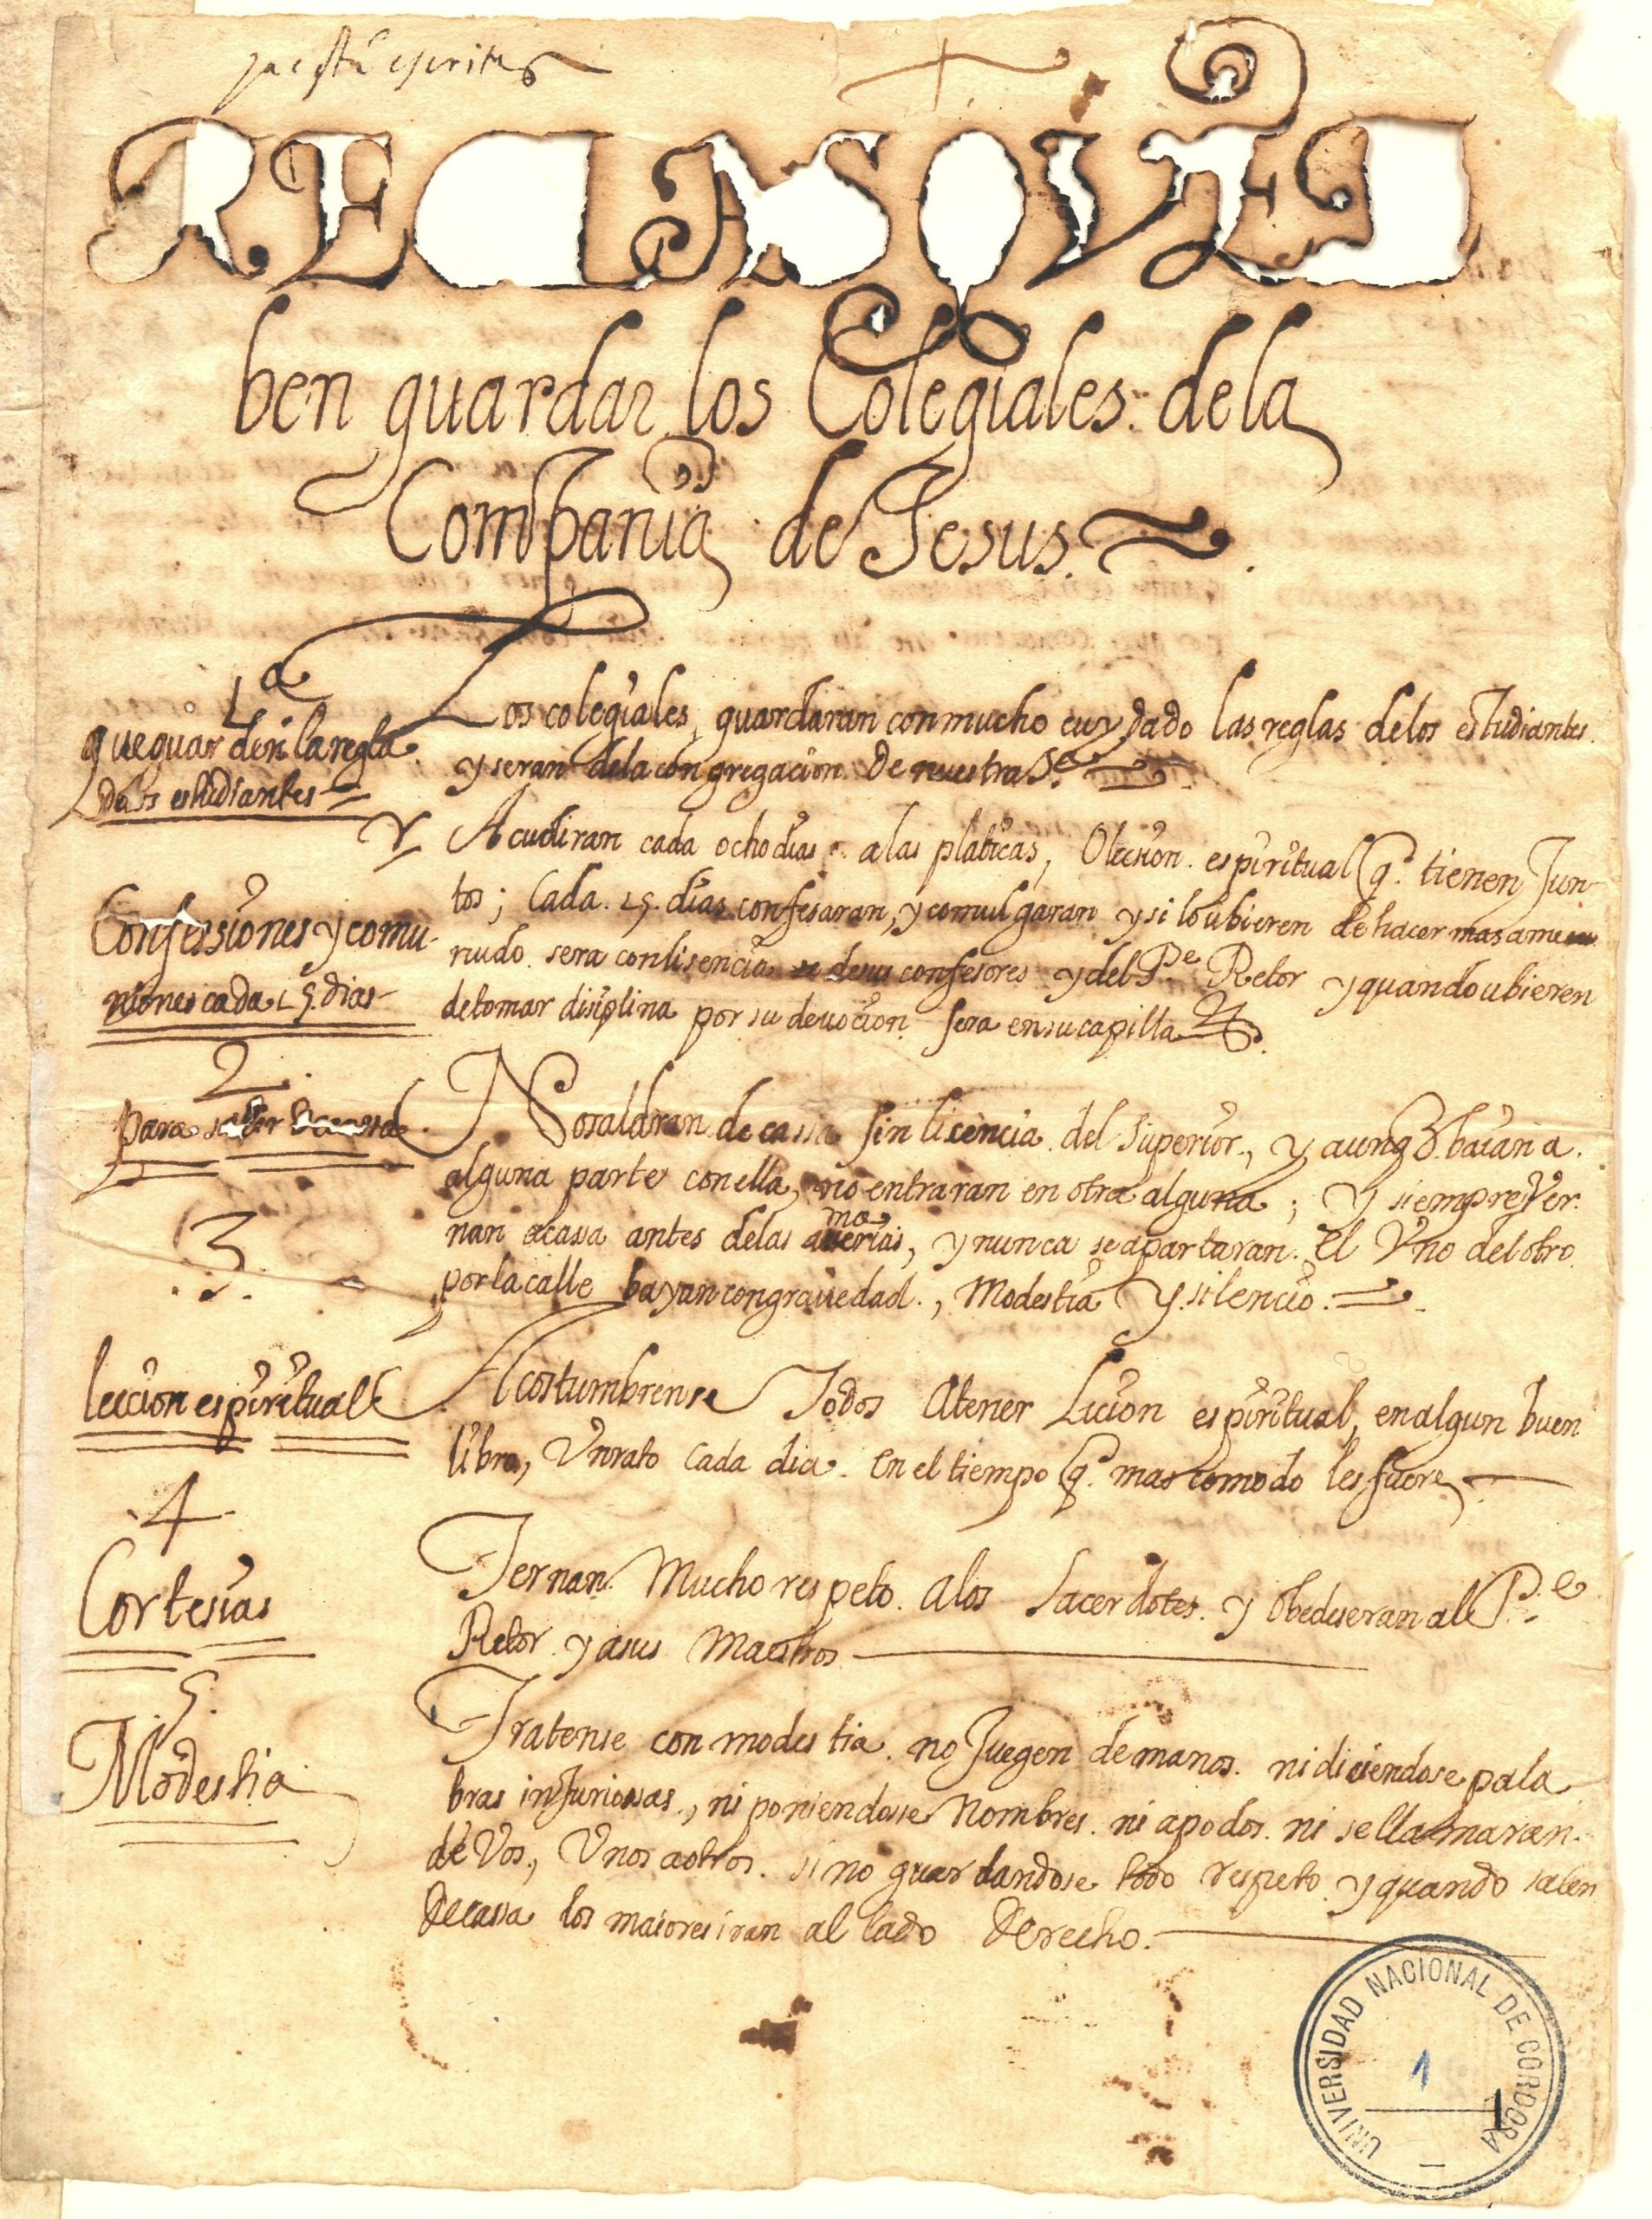 ya está escritas
REGLAS QVE DE
ben guardar los Colegiales de la
Compania de Jesus.
1ª
que guarden la regla
de los estudiantes
Los colegiales, guardaran con mucho cuydado las reglas de los estudiantes.
y seran de la congregacion de nuestra Sª
Confessiones y comu
niones cada 15 dias
Y Acudiran cada ocho dias a las platicas, O lecsion espiritual q. tienen Jun
tos; Cada 15 dias confesaran, y comulgaran y si lo ubieren de hacer mas a me
nudo sera con lisencia de sus confesores y del Pe Retor y quando ubieren
de tomar disiplina por su deuocion sera en su capilla
2.
para salir de casa
No saldran de cassa sin licencia del Superior, y aunq baian a
alguna parte con ella, no entraran en otra alguna; Y siempre Ver
nan a cassa antes de las auemarias, y nunca se apartaran el Vno del otro
por la calle bayan con grauedad, Modestia y silencio.
3.
leccion espiritual
Acostumbrense Todos A tener Licion espiritual, en algun buen
libro, Vn rato cada dia. En el tiempo q. mas comodo les fuere
4
Cortesias
Ternan Mucho respeto a los Sacerdotes y obedeseran al Pe
Retor y a sus Maestros
5.
Modestia
Tratense con modestia no Juegen de manos ni diciendose pala
bras injuriossas, ni poniendosse Nombres ni apodos ni se llamaran
de Vos, Vnos a otros. sino guardandose todo respeto y quando salen
de cassa los maiores iran al lado derecho.
UNIVERSIDAD NACIONAL DE CORDOBA
1
1